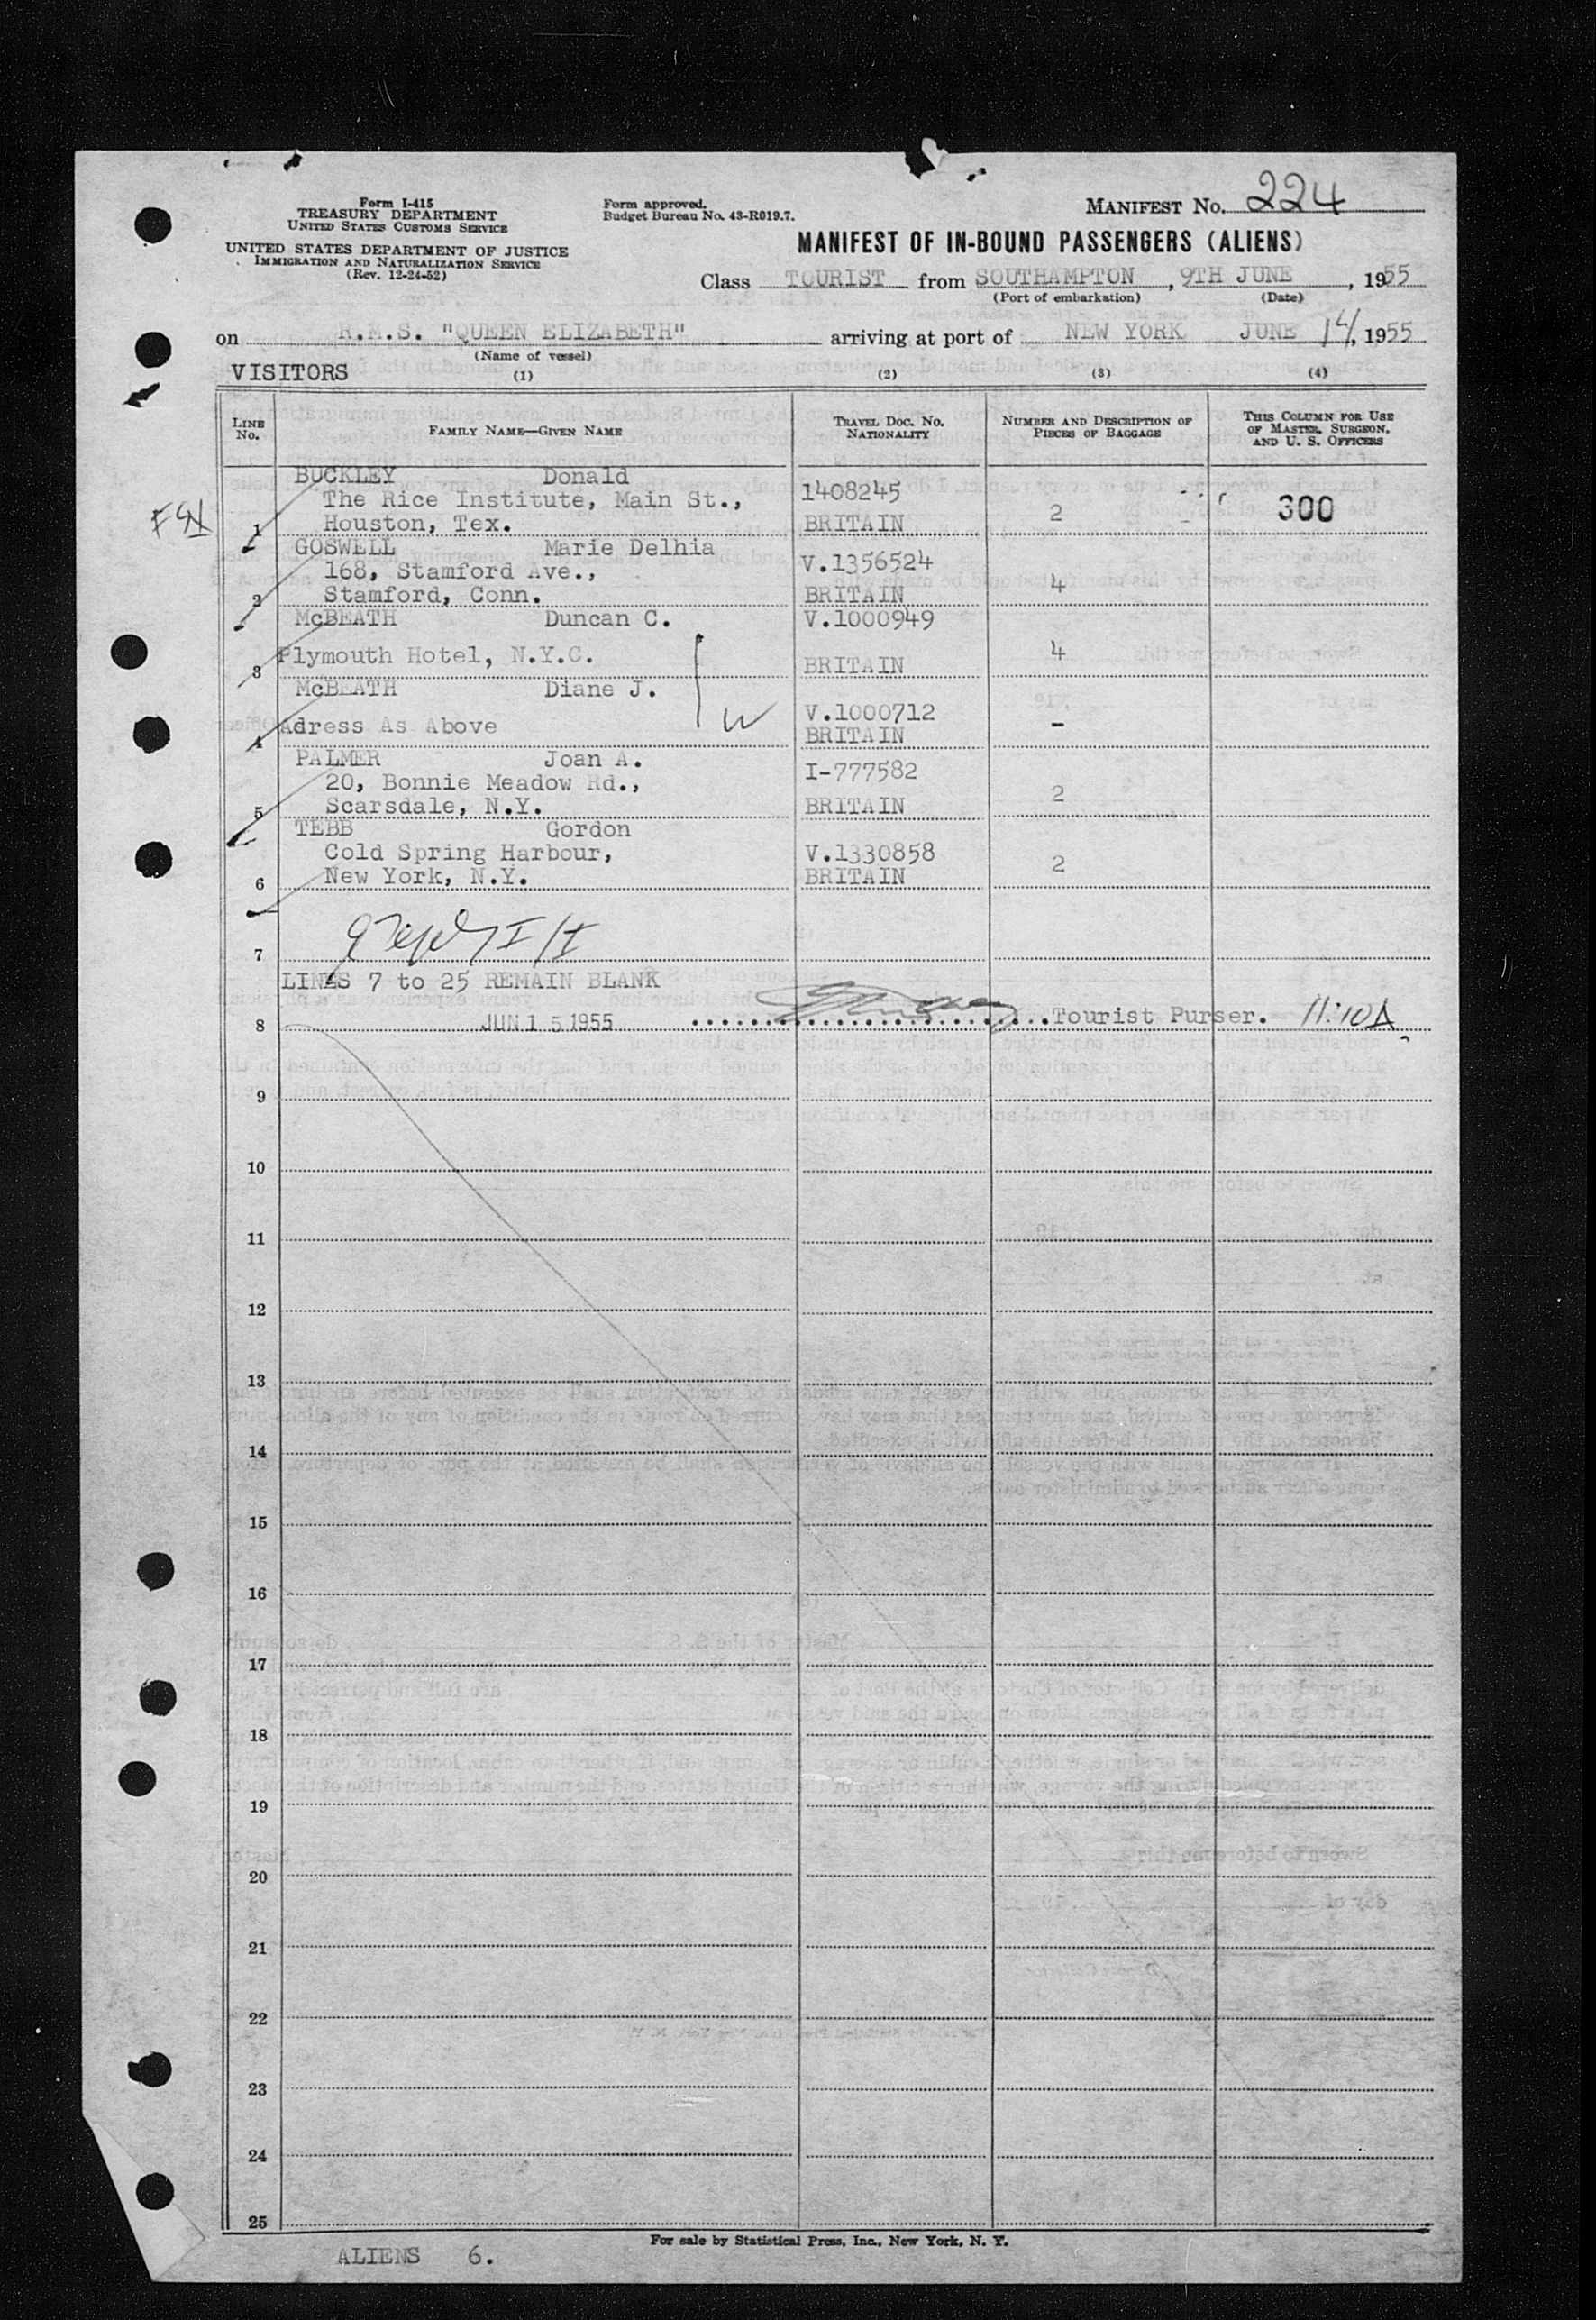 Form I-415
TREASURY DEPARTMENT
UNITED STATES CUSTOMS SERVICE
UNITED STATES DEPARTMENT OF JUSTICE
IMMIGRATION AND NATURALIZATION SERVICE
(Rev. 12-24-52)
Form approved.
Budget Bureau No. 43-R019.7.
MANIFEST No. 224
MANIFEST OF IN-BOUND PASSENGERS (ALIENS)
Class TOURIST from SOUTHAMPTON, 9TH JUNE, 1955
(Port of embarkation) (Date)
on R.M.S. "QUEEN ELIZABETH" arriving at port of NEW YORK JUNE 14, 1955
(Name of vessel)
VISITORS (1) (2) (3) (4)
LINE No. FAMILY NAME—GIVEN NAME TRAVEL DOC. No. NATIONALITY NUMBER AND DESCRIPTION OF PIECES OF BAGGAGE THIS COLUMN FOR USE OF MASTER, SURGEON, AND U. S. OFFICERS
BUCKLEY Donald
The Rice Institute, Main St., 1408245
1 Houston, Tex. BRITAIN 2 300
GOSWELL Marie Delhia
168, Stamford Ave., V.1356524
2 Stamford, Conn. BRITAIN 4
McBEATH Duncan C. V.1000949
3 Plymouth Hotel, N.Y.C. BRITAIN 4
McBEATH Diane J.
V.1000712
4 Adress As Above W BRITAIN -
PALMER Joan A.
20, Bonnie Meadow Rd., I-777582
5 Scarsdale, N.Y. BRITAIN 2
TEBB Gordon
Cold Spring Harbour, V.1330858
6 New York, N.Y. BRITAIN 2
7
LINES 7 to 25 REMAIN BLANK
8 JUN 15 1955 Tourist Purser. 11:10A
9
10
11
12
13
14
15
16
17
18
19
20
21
22
23
24
25
For sale by Statistical Press, Inc., New York, N. Y.
ALIENS 6.